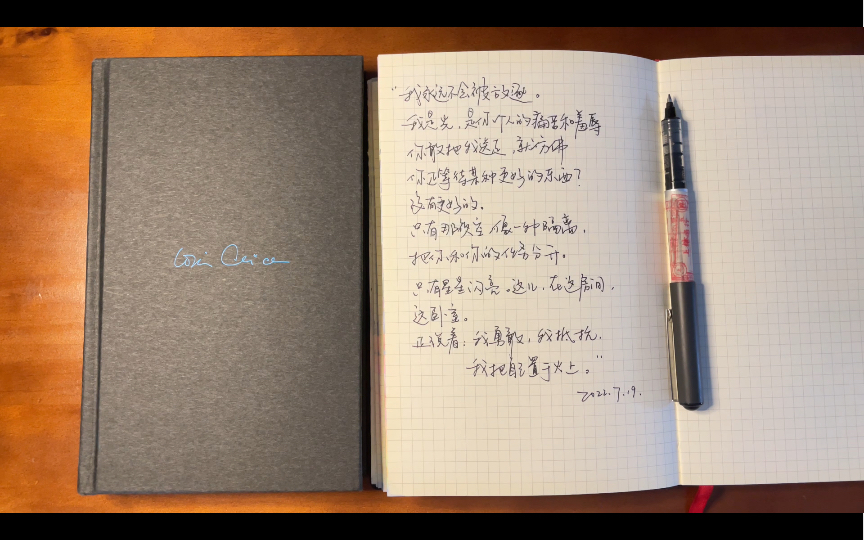 “我永远不会被放逐。
我是光，是你个人的痛苦和羞辱
你敢把我送走，就仿佛
你正等待某种更好的东西？
没有更好的。
只有那天空像一种隔离，
把你和你的任务分开。
只有星星闪亮。这儿，在这房间，
这卧室。
正说着：我勇敢，我抵抗，
我把自己置于火上。”
2022.7.19.